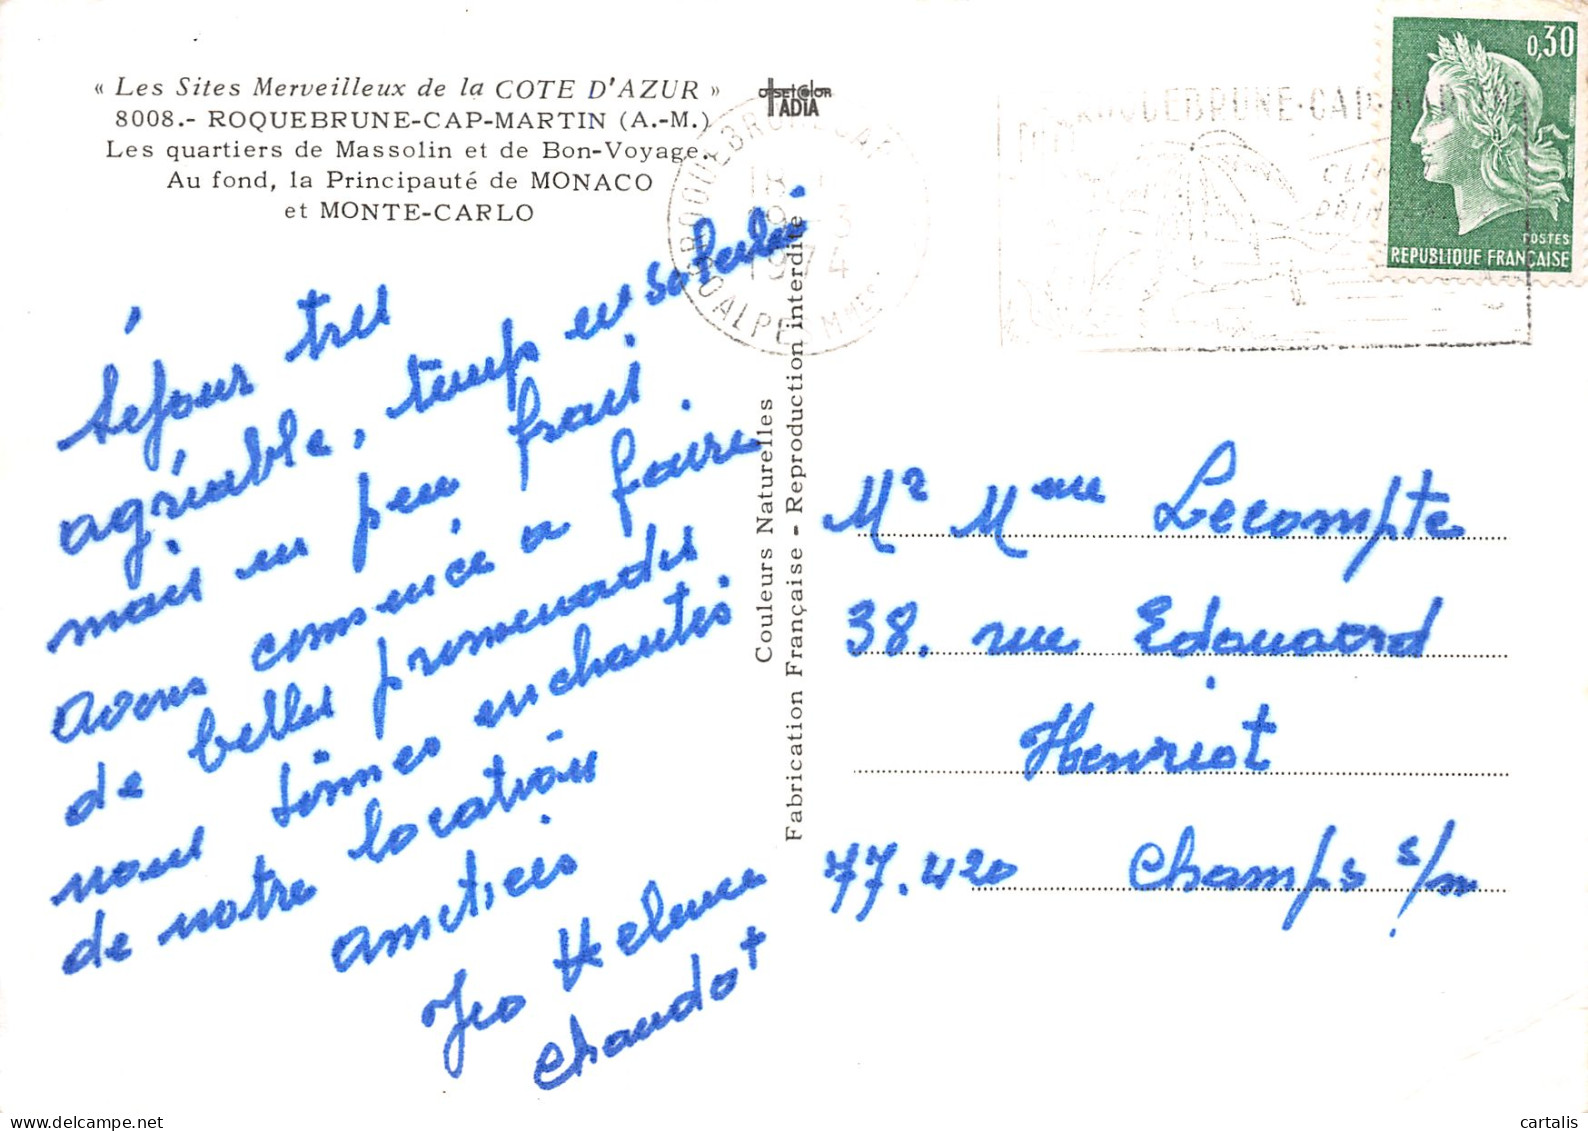 « Les Sites Merveilleux de la COTE D'AZUR »
8008.- ROQUEBRUNE-CAP-MARTIN (A.-M.)
Les quartiers de Massolin et de Bon-Voyage.
Au fond, la Principauté de MONACO
et MONTE-CARLO
offset color
IADIA
ROQUEBRUNE CAP
18
1974
ALPES MMES
ROQUEBRUNE-CAP-MAR
0,30
POSTES
REPUBLIQUE FRANÇAISE
Séjour très
agréable, temps ensoleillé
mais un peu frais
avons commencé a faire
de belles promenades
nous sommes enchantés
de notre location
amitiés
Geo Helene
Chaudot
Couleurs Naturelles
Fabrication Française - Reproduction interdite
Mr Mme Lecompte
38. rue Edouard
Henriot
77.420 Champs s/m
cartalis
www.delcampe.net